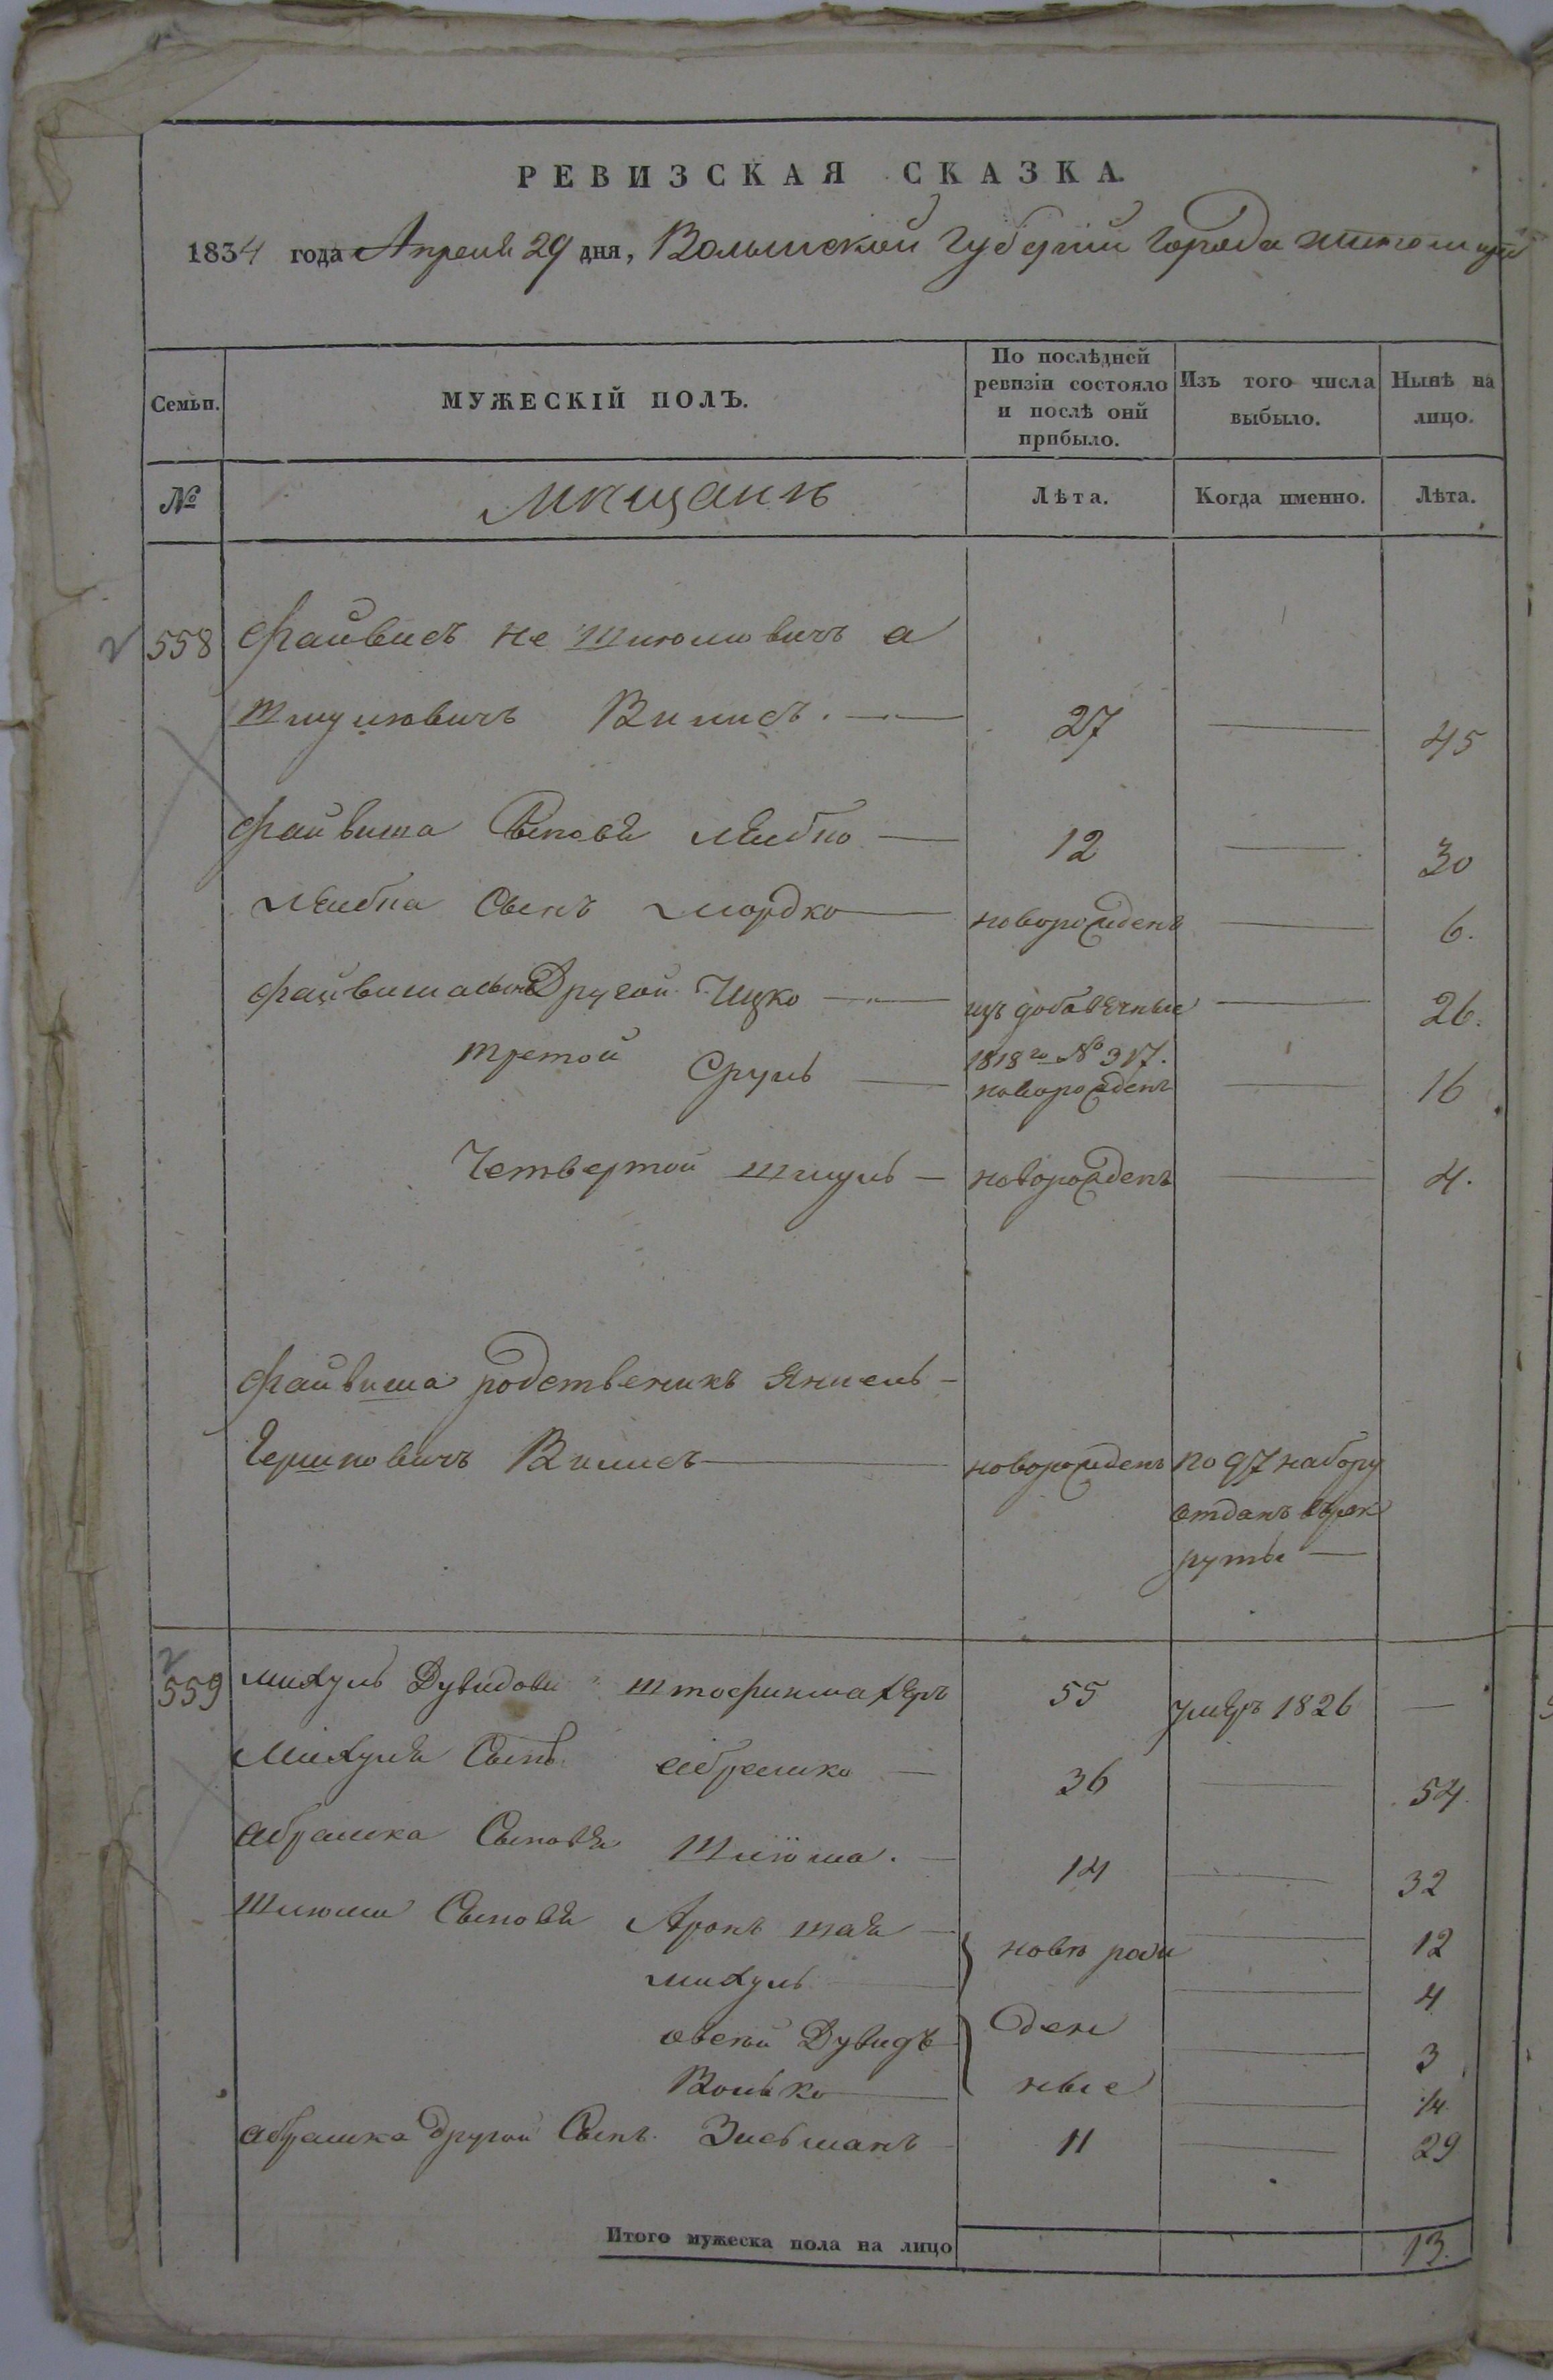 РЕВИЗСКАЯ СКАЗКА.
1834 года Апреля 29 дня, Волынской Губернии Города Житомира
Семьи. МУЖЕСКІЙ ПОЛЪ. По послѣдней ревизіи состояло и послѣ онй прибыло. Изъ того числа выбыло. Нынѣ на лицо.
№ Мѣщанѣ Лѣта. Когда именно. Лѣта.
558 Файвишъ не Шиомовичъ а
Шмулювичъ 27 45
Файвиша Сыновя Лейбко 12 30
Лейбка Сынъ Мордко новорожденъ 6.
Файвиша сынъ Другой Ицко изъ добавочные 26.
1818го № 317.
третой Сруль новорожденъ 16
Четвертой Шмуль новорожденъ 4.
Файвиша родственикъ Янкель
Гершковичъ новорожденъ по 97 набору
отданъ въ рек
руты
559 Михуль Дувидови 55 умеръ 1826
Михуля Сынъ Абрашко 36 54.
Абрашка Сыновя Шлиома. 14 32
Шлиомы Сыновя Аронъ Шая 12
Михуль новъ рож 4
Овсей Дувидъ ден 3
Волько ные 1/4
Абрашка Другой Сынъ. Зисьманъ 11 29
Итого мужеска пола на лицо 13.